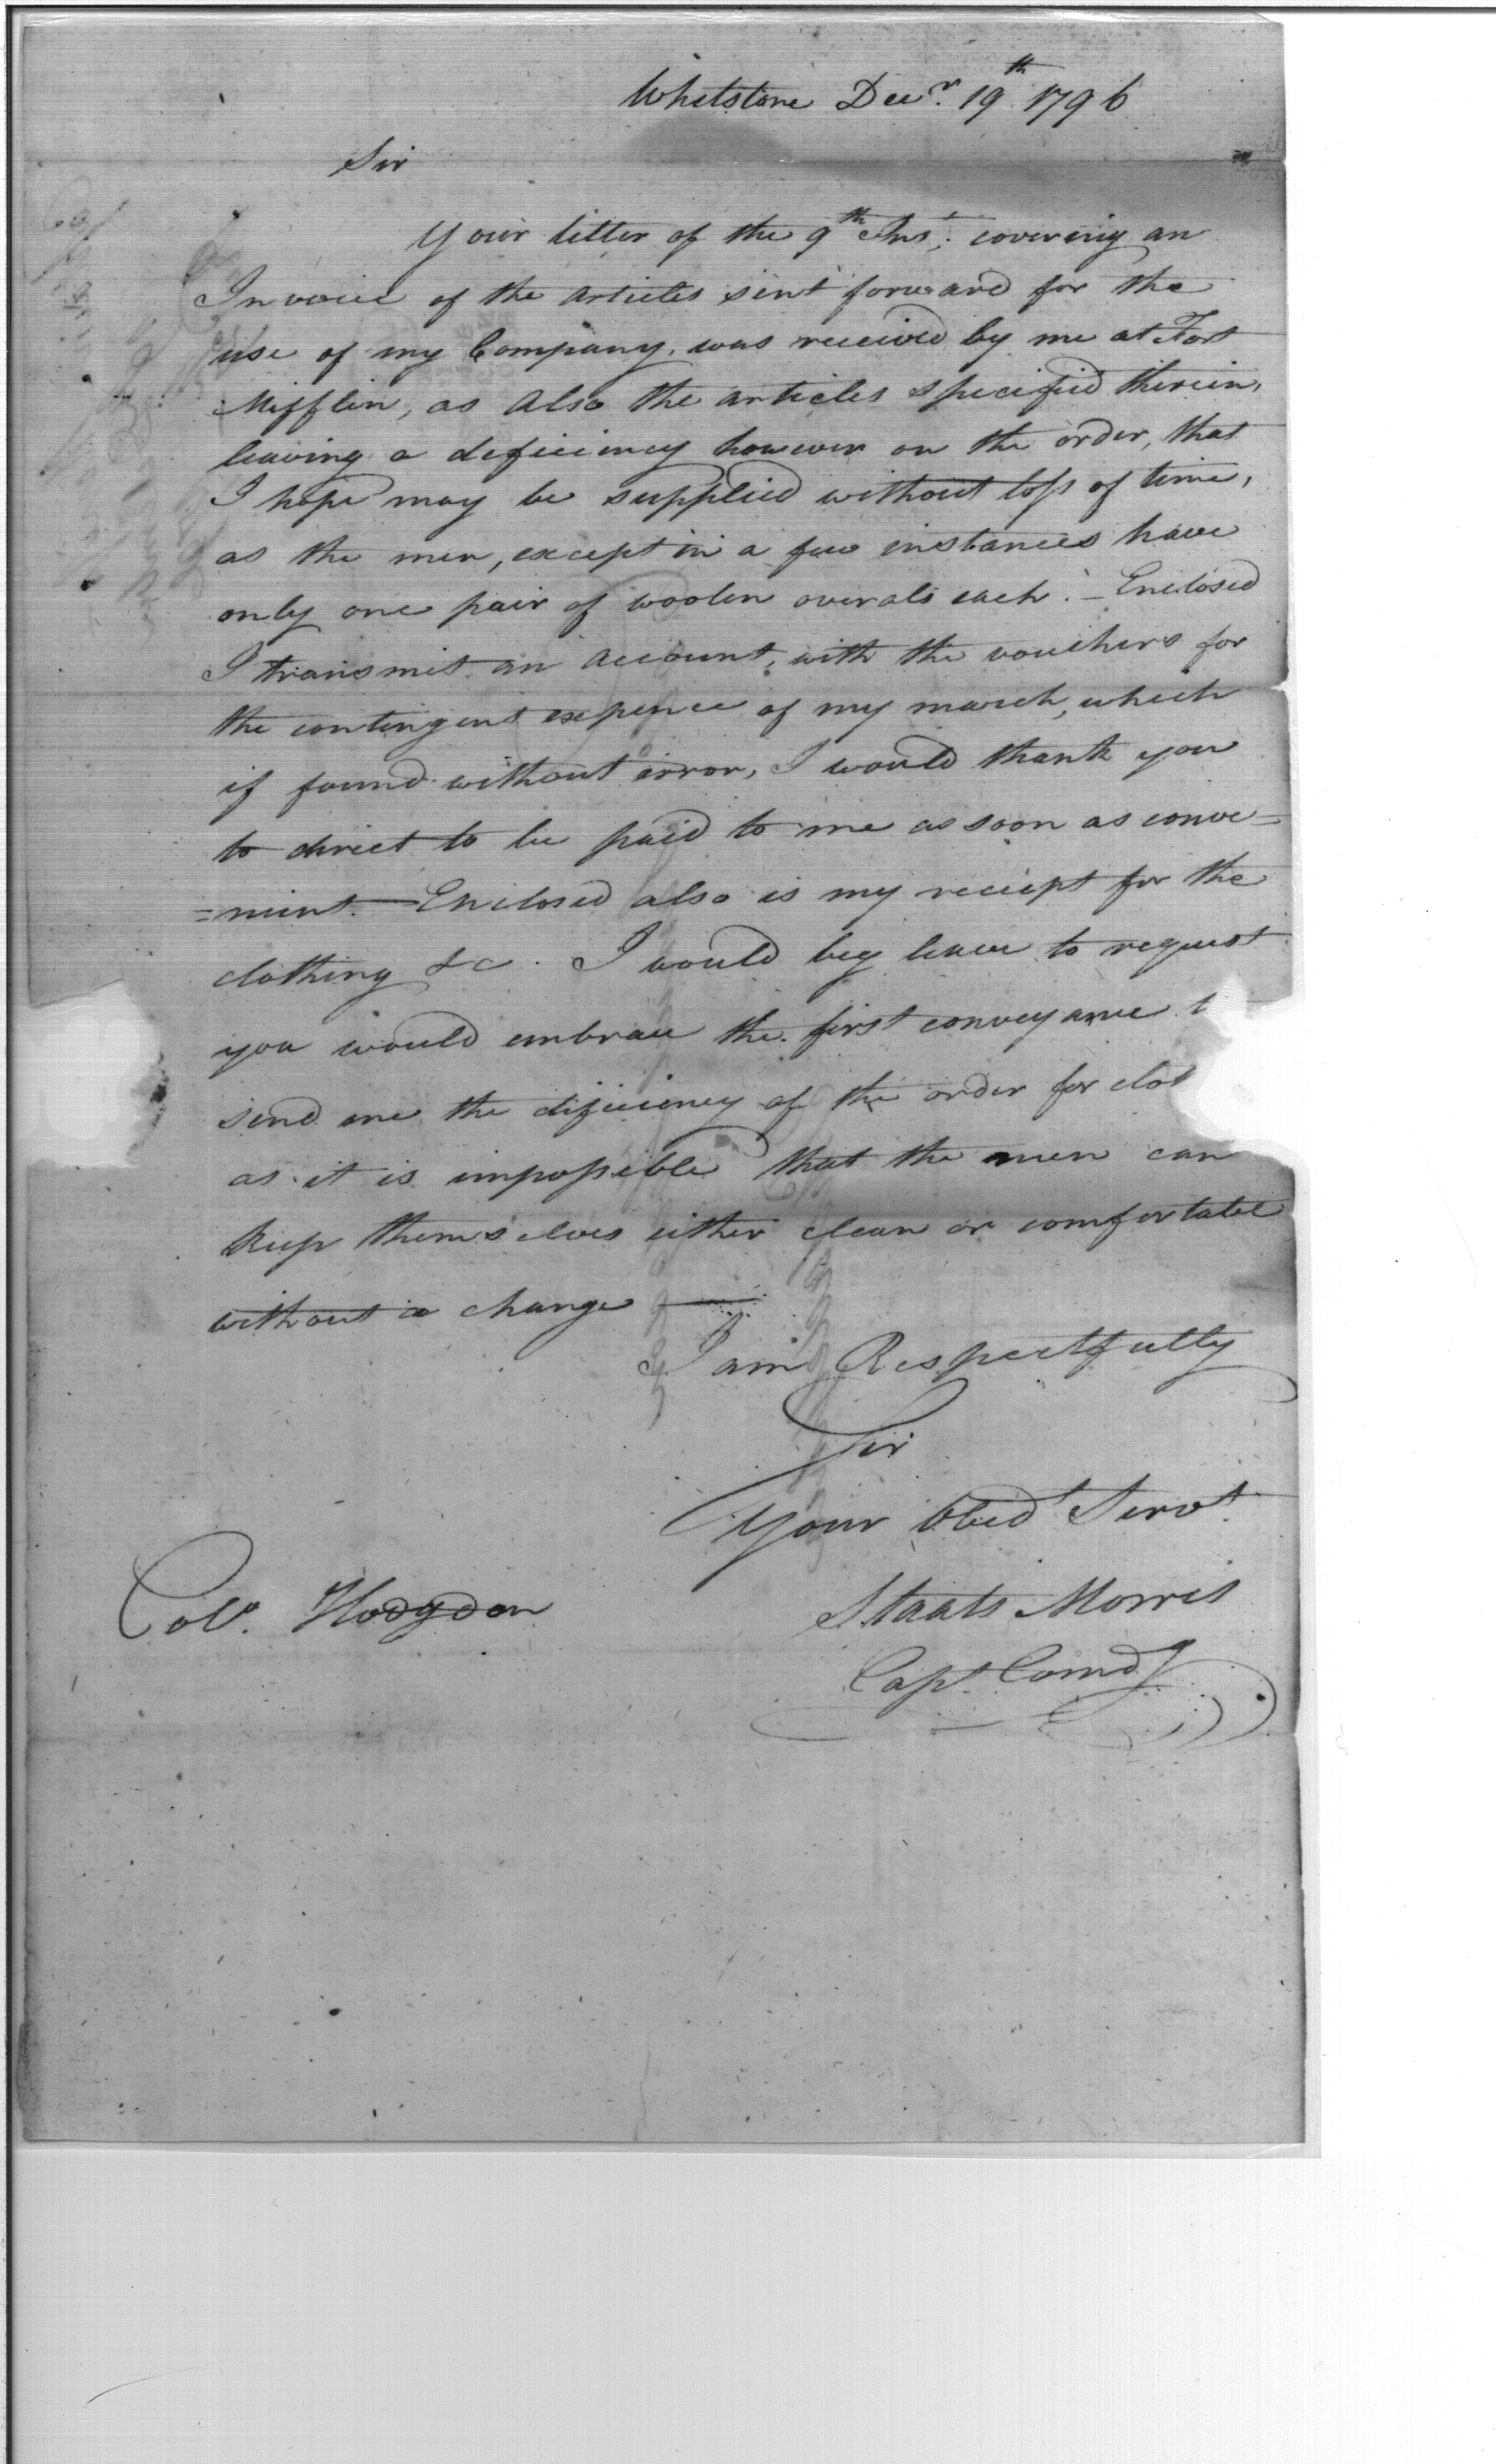 Whetstone Decr. 19th 1796
Sir
Your letter of the 9th Inst; covering an
Invoice of the articles sent forward for the
use of my Company, was received by me at Fort
Mifflin, as also the articles specified therein,
leaving a deficiency however on the order, that
I hope may be supplied without loss of time,
as the men, except in a few instances have
only one pair of woolen overals each. – Enclosed
I transmit an account, with the vouchers for
the contingent expence of my march, which
if found without error, I would thank you
to direct to be paid to me as soon as conve=
=nient. – Enclosed also is my reciept for the
clothing &c. I would beg leave to request
you would embrace the first conveyance t
send me the deficiency of the order for clot
as it is impossible that the men can
keep themselves either clean or comfortable
without a change —
I am Respectfully
Sir
Your Obed Servt.
Colo. Hodgdon
Staats Morris
Capt. Comdg